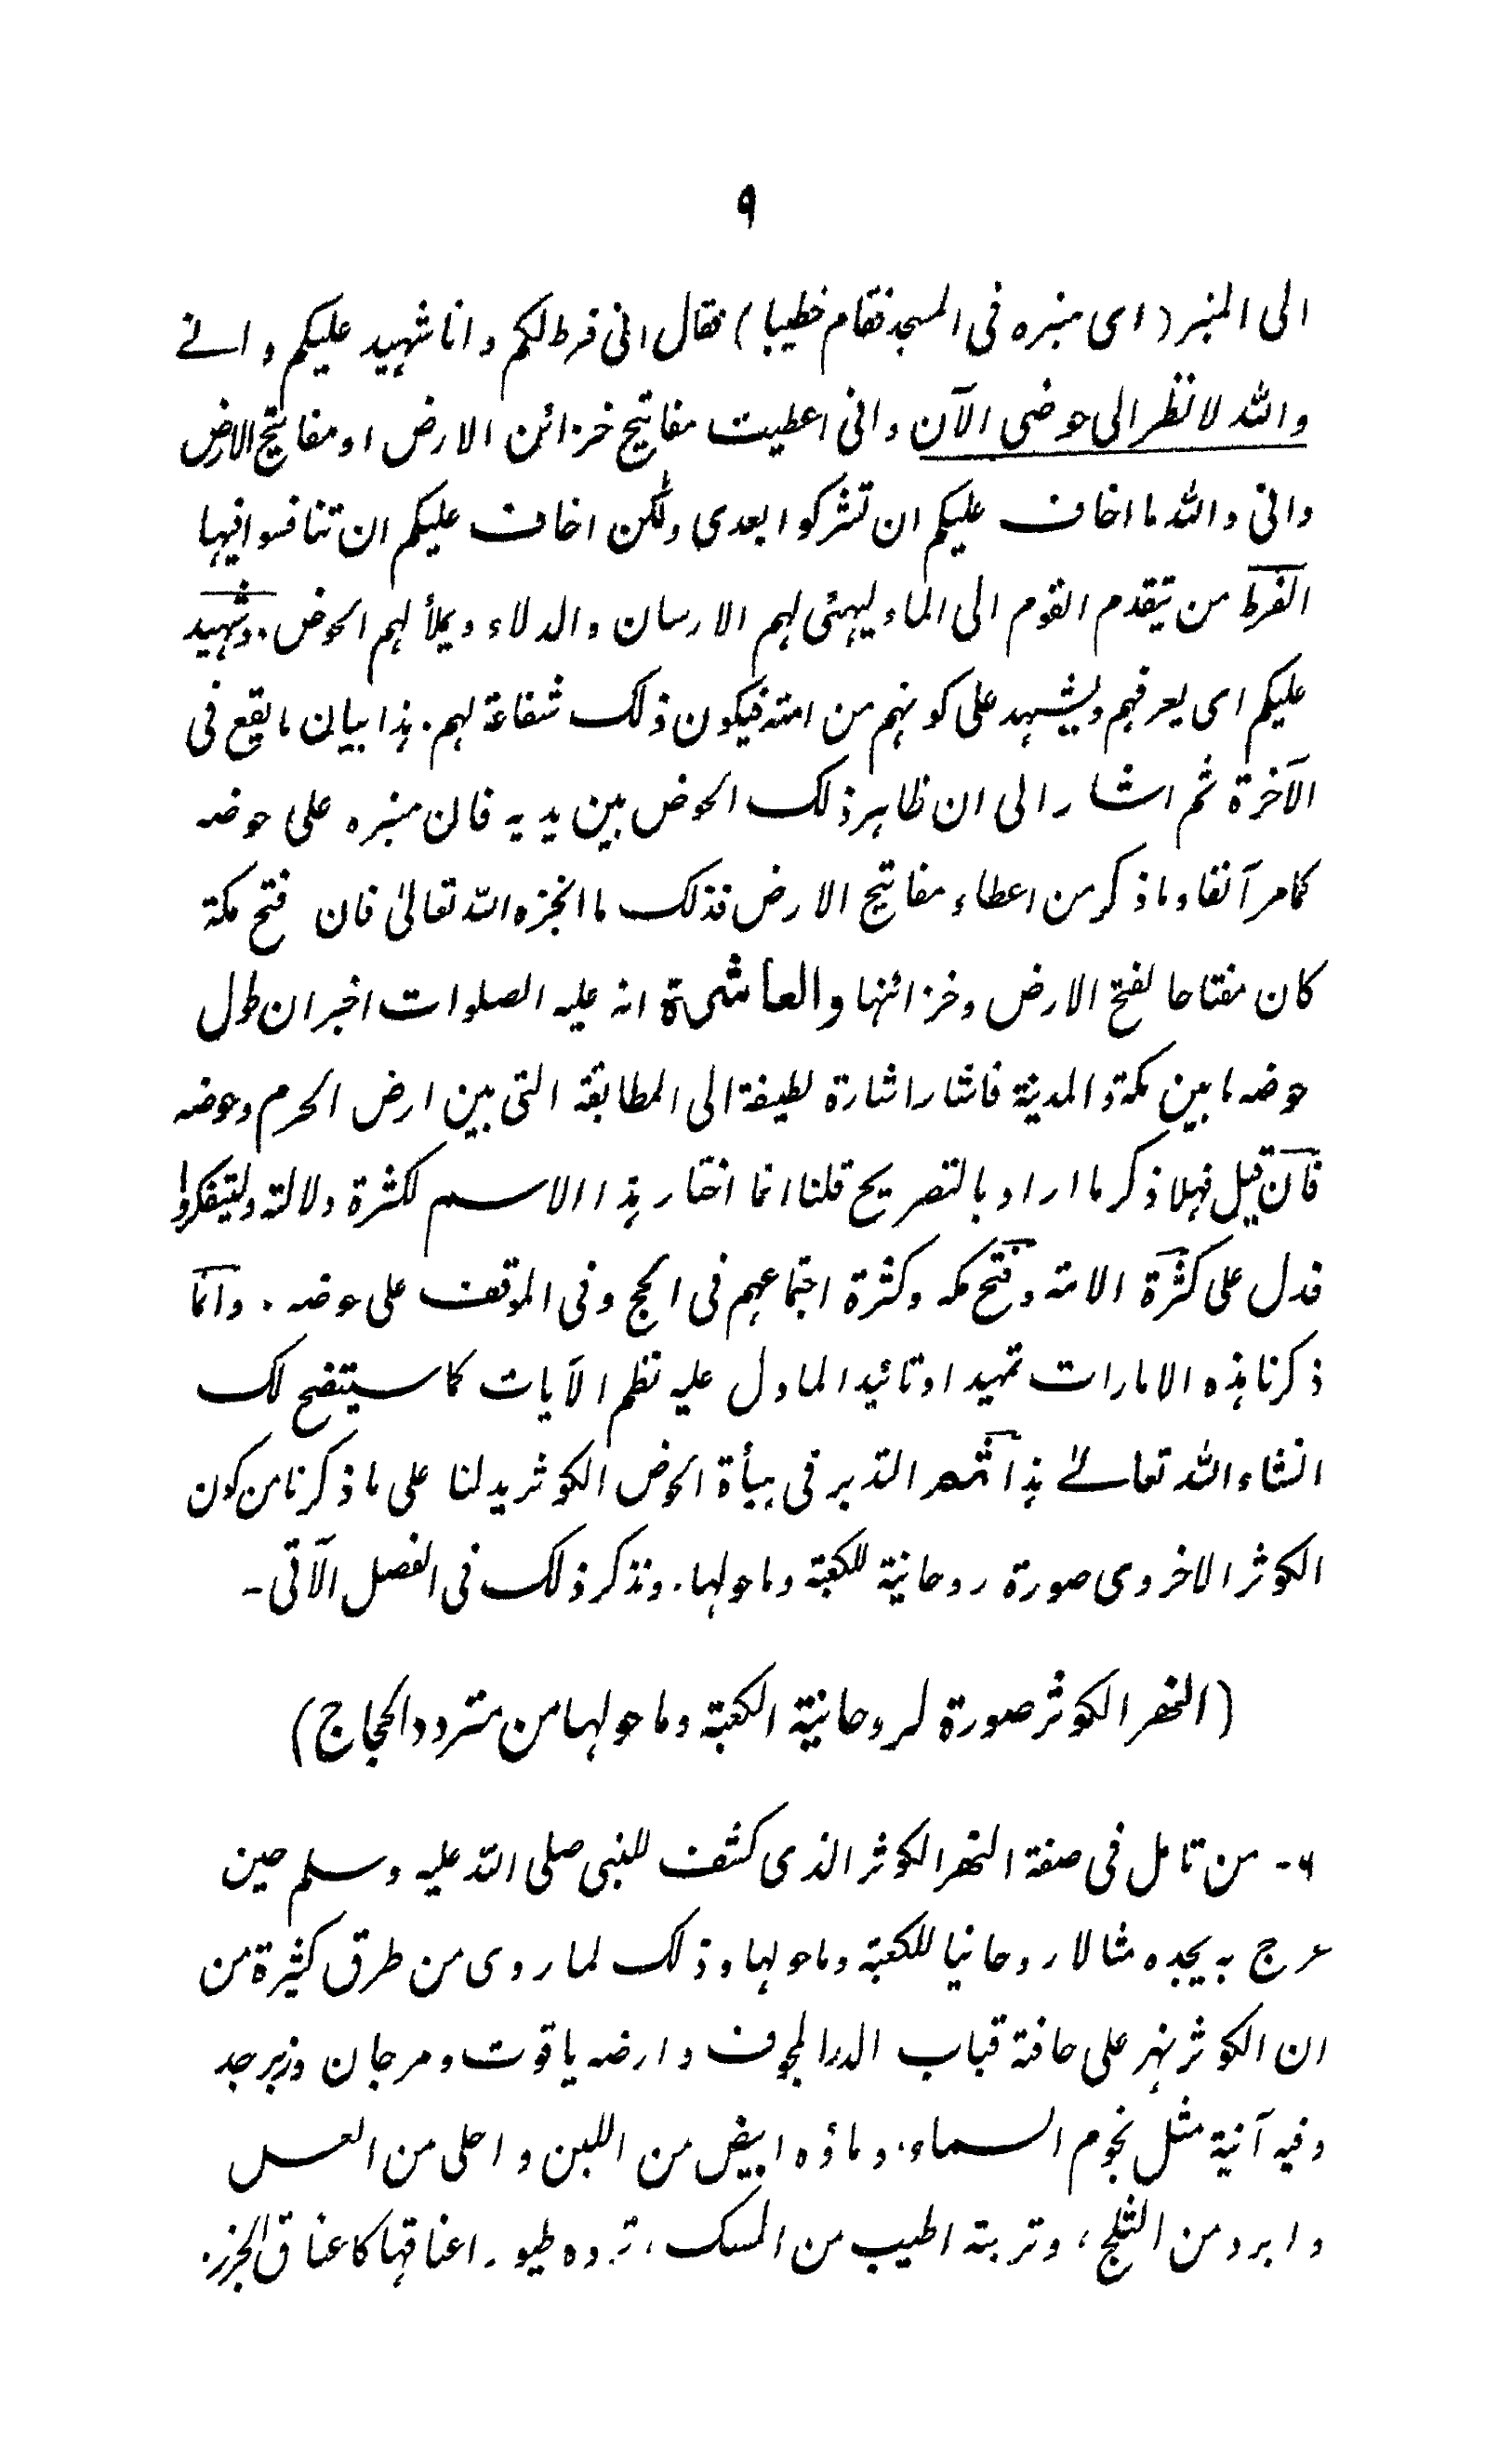 ٩
الى المنبر (اى منبره فى المسجد فقام خطيبا) فقال انى فرط لكم وانا شهيد عليكم وانے
والله لانظر الى حوضى الآن وانى اعطيت مفاتيح خزائن الارض او مفاتيح الارض
وانى والله ما اخاف عليكم ان تشركوا بعدى ولٰكن اخاف عليكم ان تنافسوا فيها
الفرط من يتقدم القوم الى الماء ليهئى لهم الارسان والدلاء ويملأ لهم الحوض. وشهيد
عليكم اى يعرفهم ويشهد على كونهم من امته فيكون ذلك شفاعة لهم. هذا بيان ما يقع فى
الآخرة ثم اشار الى ان ظاهر ذلك الحوض بين يديه فان منبره على حوضه
كما مر آنفا وما ذكر من اعطاء مفاتيح الارض فذلك ما انجزه الله تعالىٰ فان فتح مكة
كان مفتاحا لفتح الارض وخزائنها والعاشرة انه عليه الصلوات اخبر ان طول
حوضه ما بين مكة والمدينة فاشار اشارة لطيفة الى المطابقة التى بين ارض الحرم وحوضه
فان قيل فهلا ذكر ما اراد بالتصريح قلنا انما اختار هذا الاسم لكثرة دلالته وليتفكروا
فدل على كثرة الامته وفتح مكه وكثرة اجتماعهم فى الحج وفى الموقف على حوضه. وانما
ذكرنا هذه الامارات تمهيدا وتائيدا لما دل عليه نظم الآيات كما سيتضح لك
انشاء الله تعالےٰ هذا ثم التدبر فى هيأة الحوض الكوثر يدلنا على ما ذكرنا من كون
الكوثر الاخروى صورة روحانية للكعبة وما حولها. ونذكر ذلك فى الفصل الآتى-
(النهر الكوثر صورة لروحانية الكعبة وما حولها من متردد الحجاج)
٦- من تامل فى صفة النهر الكوثر الذى كشف للنبى صلى الله عليه وسلم حين
عرج به يجده مثالا روحانيا للكعبة وما حولها وذلك لما روى من طرق كثيرة من
ان الكوثر نهر على حافة قباب الدر المجوف وارضه ياقوت ومرجان وزبرجد
وفيه آنية مثل نجوم السماء. وماؤه ابيض من اللبن واحلى من العسل
وابرد من الثلج، وتربته اطيب من المسك، ترده طيور اعناقها كاعناق الجزر.